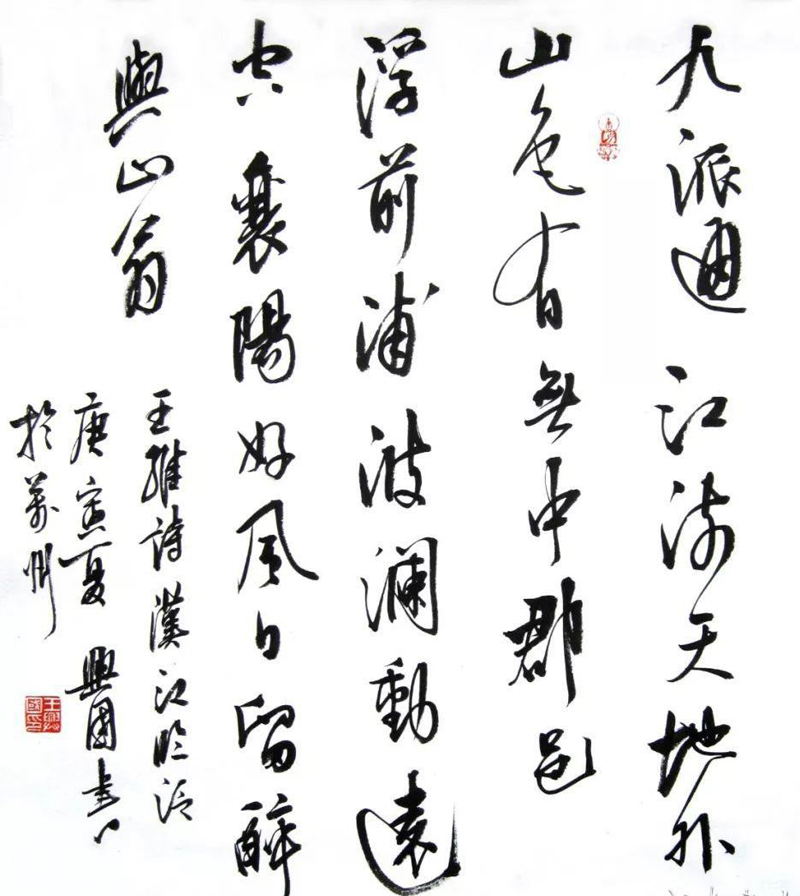 九派通江流天地外
山色有無中郡邑
浮前浦波瀾動遠
空襄陽好風日留醉
與山翁
王維詩漢江臨泛
庚寅夏興國書
於萬州
王興國印